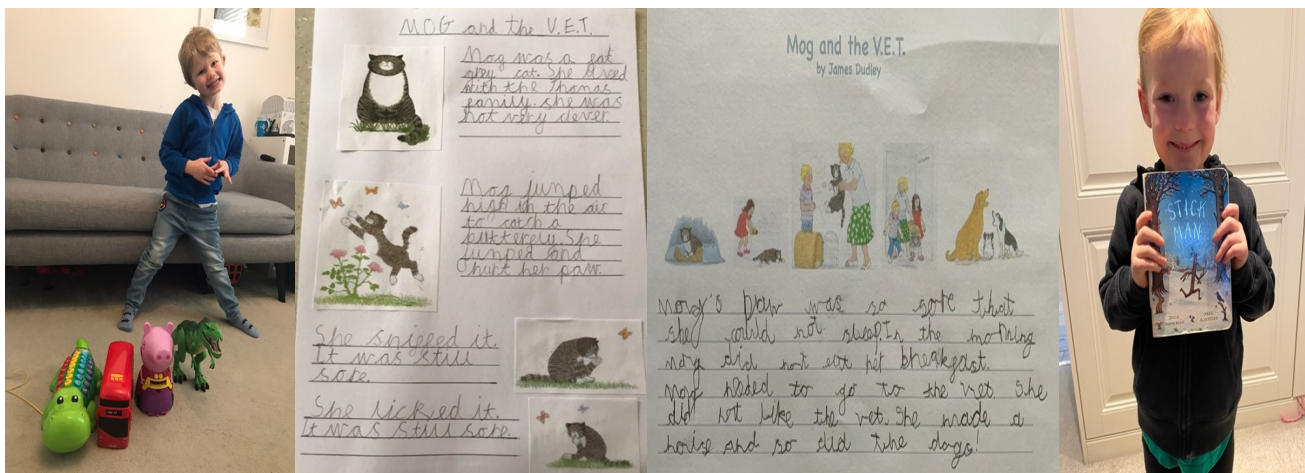 MOG and the V.E.T.
Mog was a fat
grey cat. She lived
with the thomas
family. she was
not very clever.
Mog jumped
high in the air
to catch a
butterfly. She
jumped and
hurt her paw.
She sniffed it.
It was still
sore.
She licked it.
It was still sore.
Mog and the V.E.T.
by James Dudley
mog's paw was so sore that
she could not sleep. In the morning
mog did not eat her breakfast.
mog needed to go to the vet. She
did not like the vet. She made a
noise and so did the dogs!
STICK
MAN